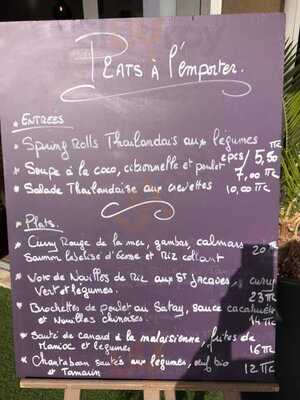 PLATS à l'emporter.
* ENTRÉES
* Spring Rolls Thaïlandais aux légumes
6pcs/ 5,50 TTC
* Soupe à la coco, citronnelle et poulet 7,00 TTC
* Salade Thaïlandaise aux crevettes 10,00 TTC
* Plats.
* Curry Rouge de la mer, gambas, calmars
Saumon Ecosse et Riz collant 20 TTC
* de Nouilles de Riz aux St Jacques, curry
Vert et légumes. 23 TTC
* Brochettes de poulet au Satay, sauce cacahuète
et Nouilles chinoises. 14 TTC
* Sauté de canard à la malaisienne, frites de
Manioc et légumes 16 TTC
* sautés aux légumes, œuf bio
et Tamarin 12 TTC